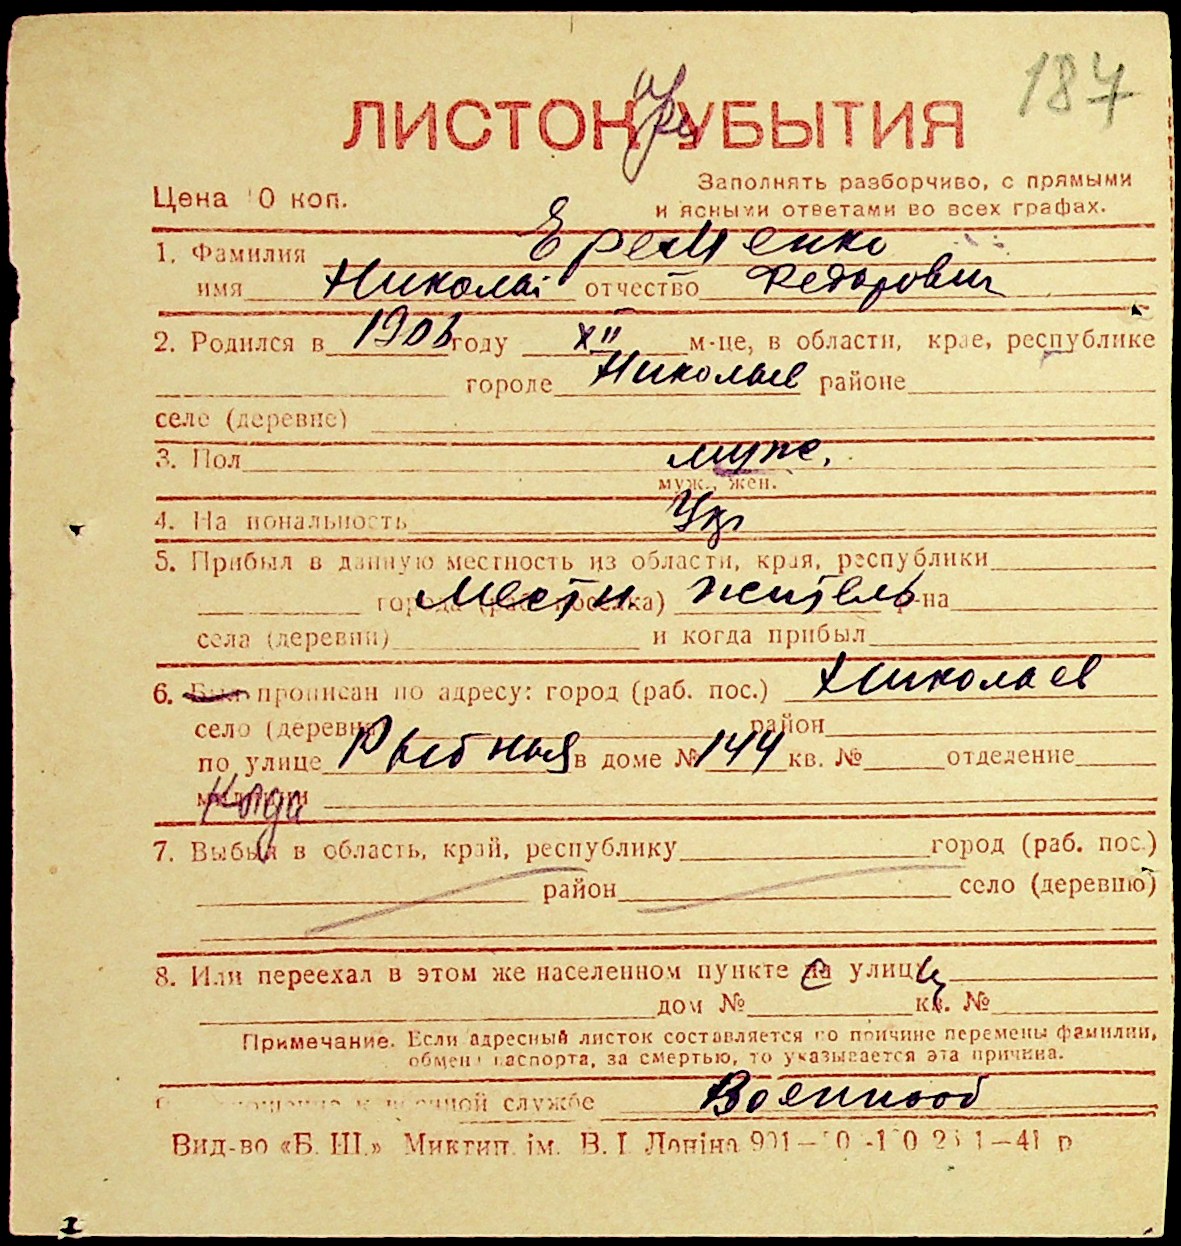 187
ЛИСТОК при УБЫТИЯ
Цена 0 коп.
Заполнять разборчиво, с прямыми
и ясными ответами во всех графах.
1. Фамилия Еременко
имя Николай отчество Федорович
2. Родился в 1906 году XII м-це, в области, крае, республике
городе Николаев районе
селе (деревне)
3. Пол муж.
муж., жен.
4. Национальность Укр
5. Прибыл в данную местность из области, края, республики
города (раб. поселка) Местн. житель р-на
села (деревни) и когда прибыл
6. Был прописан по адресу: город (раб. пос.) Николаев
село (деревня) район
по улице Рыбная в доме № 144 кв. № отделение
милиции Когда
7. Выбыл в область, край, республику город (раб. пос.)
район село (деревню)
8. Или переехал в этом же населенном пункте на с улицу ы
дом № кв. №
Примечание. Если адресный листок составляется по причине перемены фамилии,
обмена паспорта, за смертью, то указывается эта причина.
службе Военнооб
Вид-во «Б. Ш.» Миктип. ім. В. І. Леніна
1